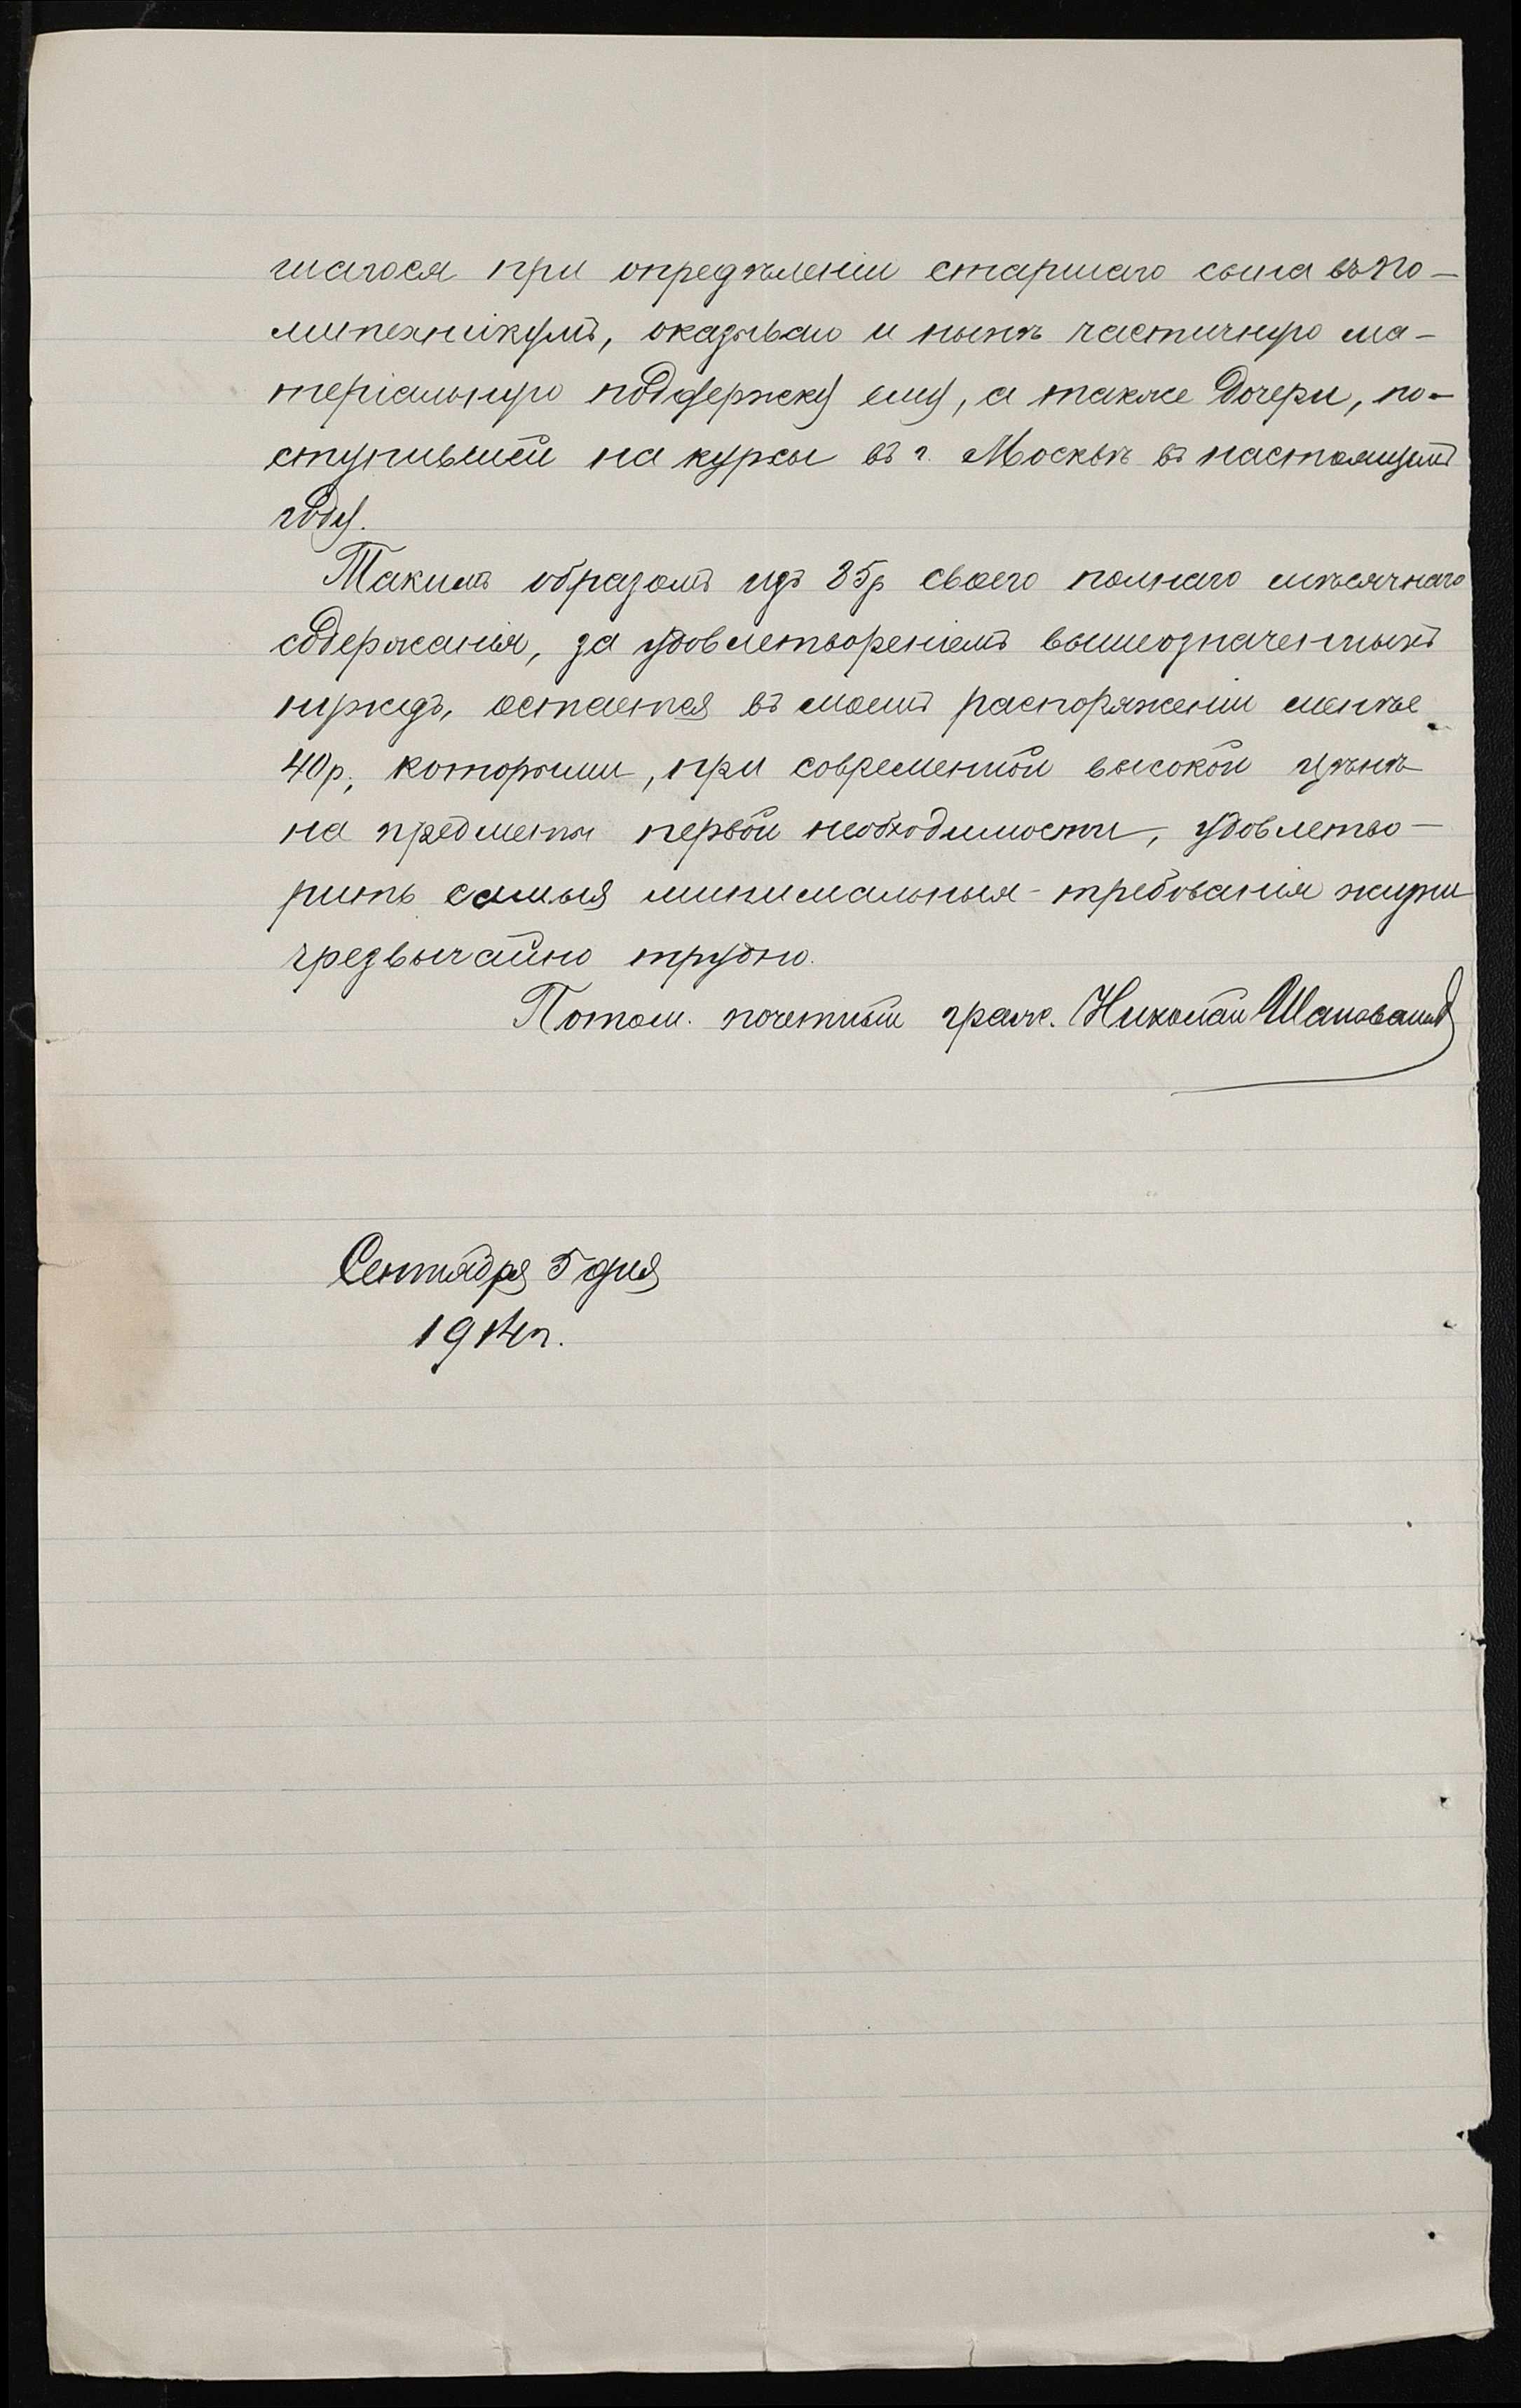 шагося при опредѣленіи старшаго сына въ по-
литехникумъ, оказываю и нынѣ частичную ма-
теріальную поддержку ему, а также дочери, по-
ступившей на курсы въ г. Москвѣ въ настоящемъ
году.
Такимъ образомъ изъ 85р своего полнаго мѣсячнаго
содержанія, за удовлетвореніемъ вышеозначенныхъ
нуждъ, остается въ моемъ распоряженіи менѣе
40р, которыми, при современной высокой цѣнѣ
на предметы первой необходимости, удовлетво-
рить самыя минимальныя требованія жизни
чрезвычайно трудно.
Потом. почетный граж. Николай
Сентября 5 дня
1914г.